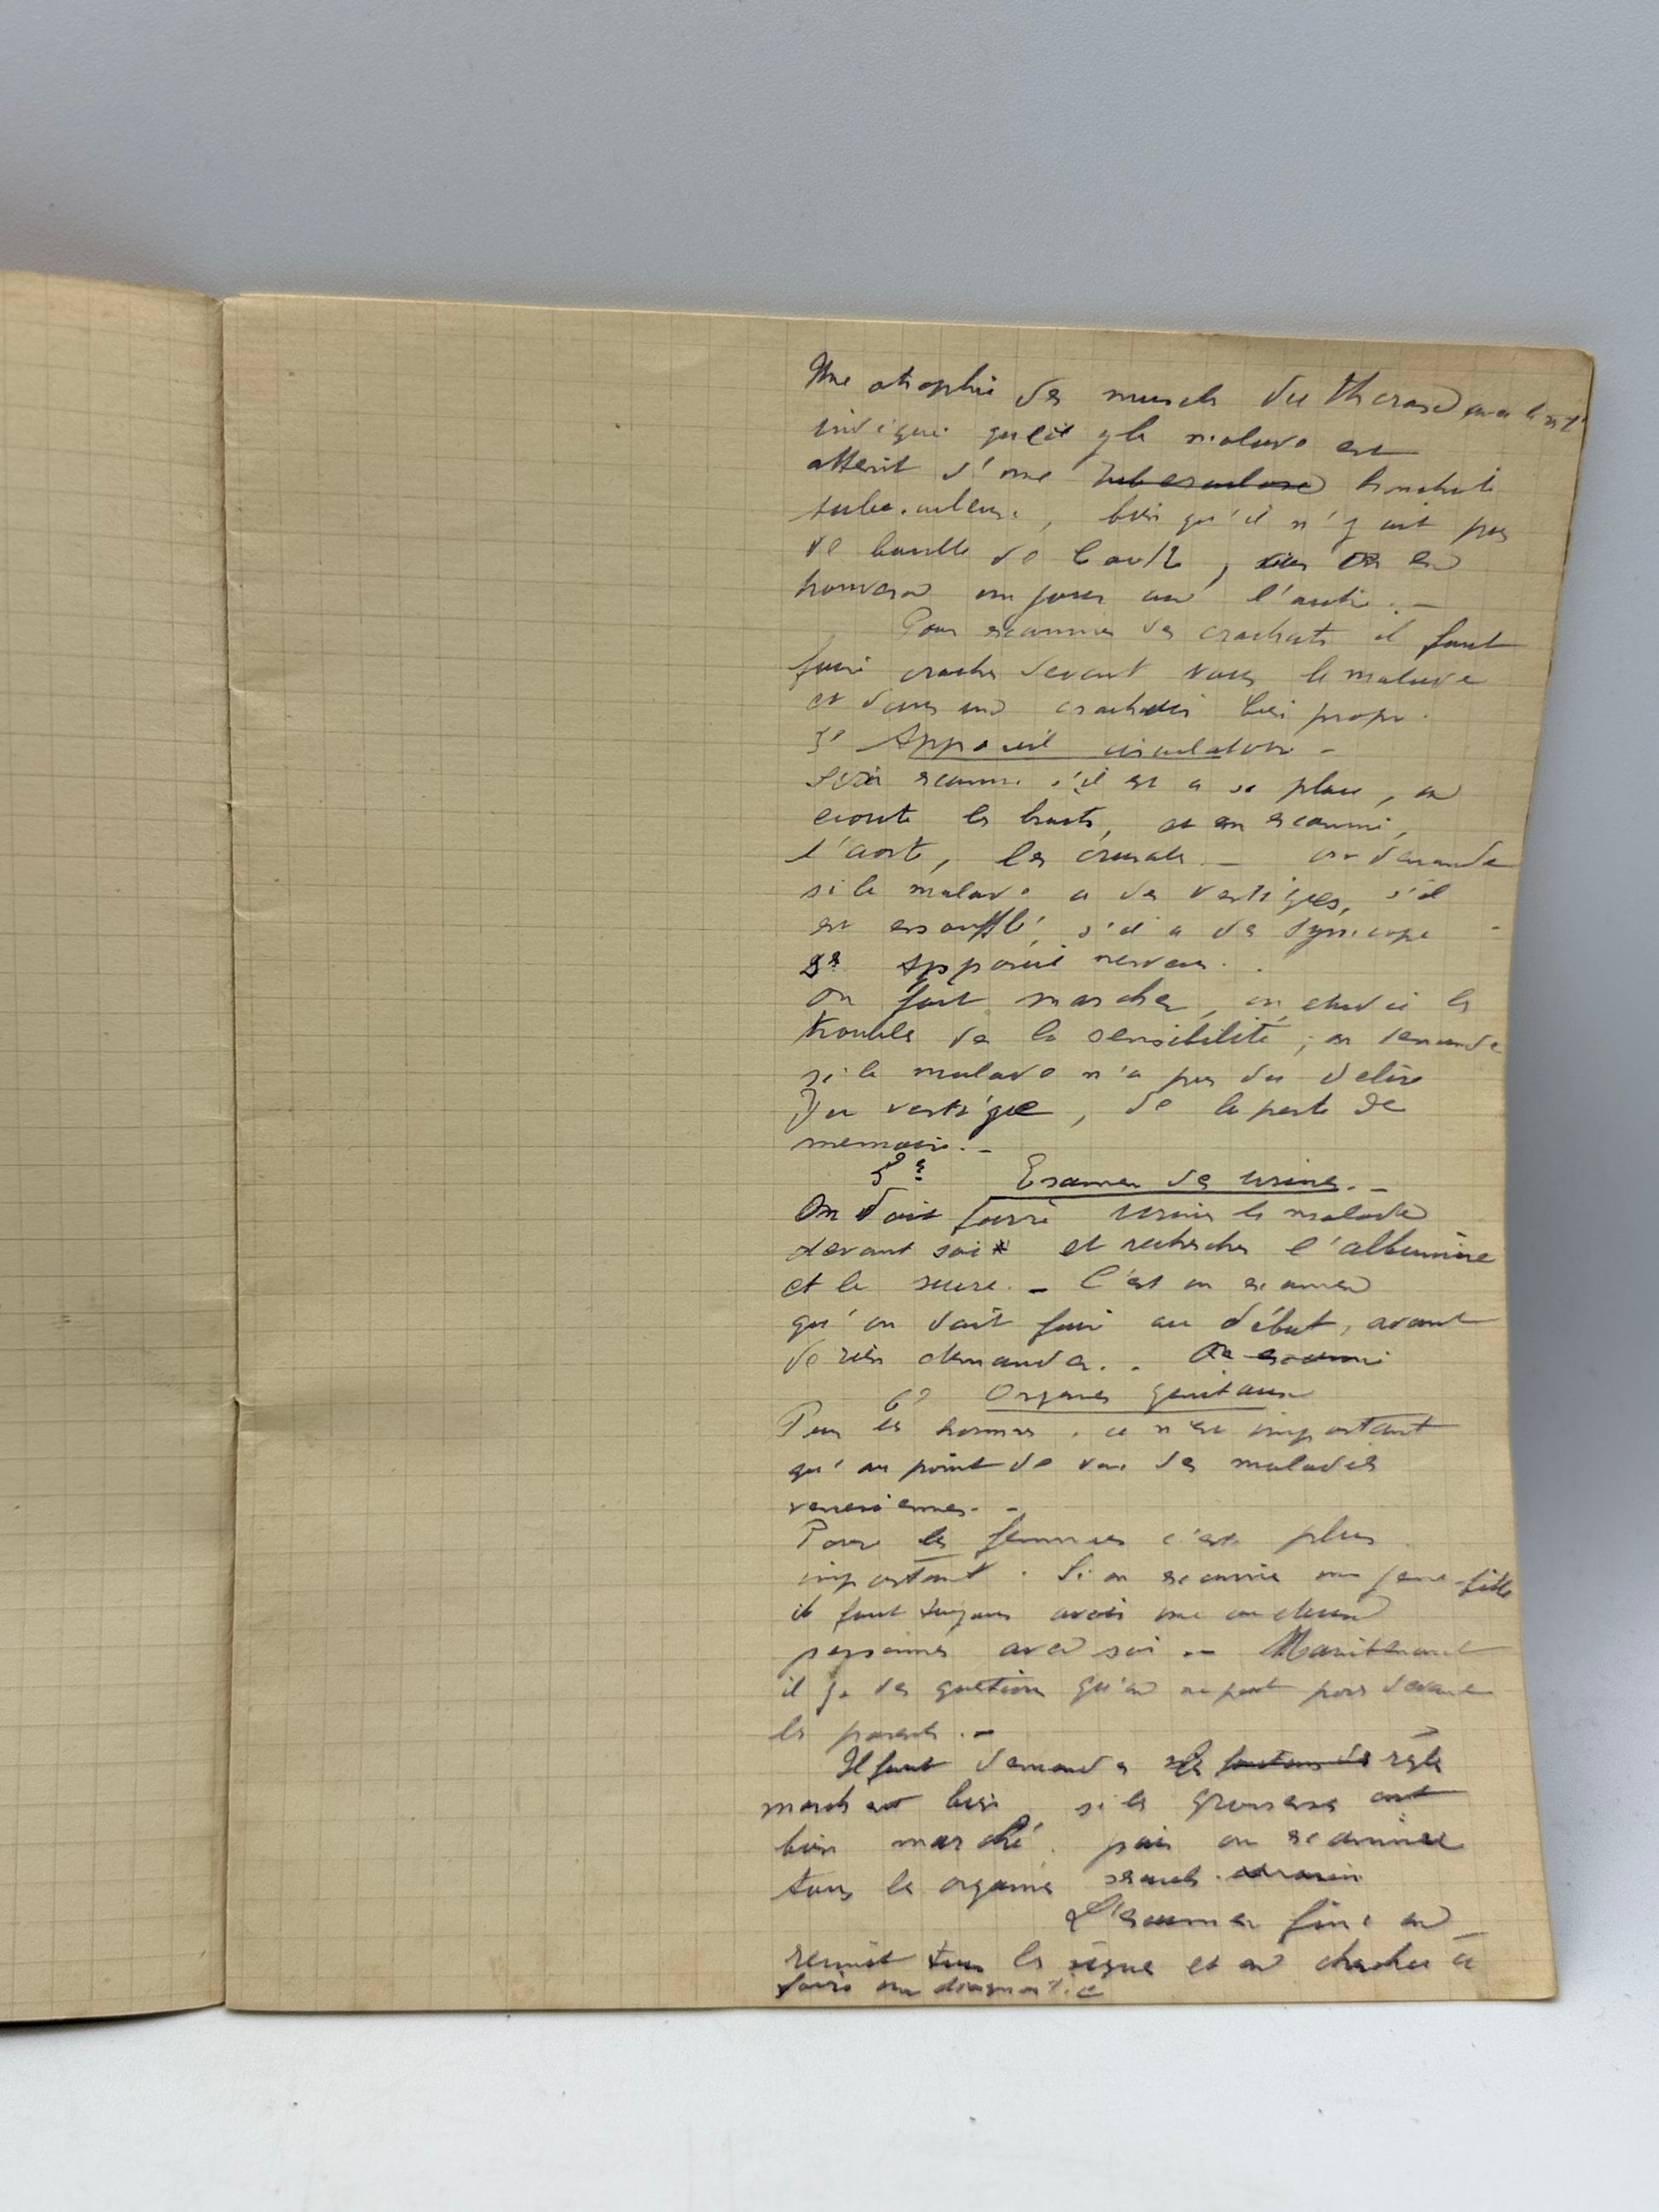 Une atrophie des muscles du thorax
indique que le malade est
atteint d'une tuberculose bronchite
tuberculeuse, bien qu'il n'y ait pas
de bacille de , on en
trouvera un jour ou l'autre. –
Pour examiner des crachats il faut
faire cracher devant vous le malade
et dans un crachoir bien propre.
3° Appareil circulatoire –
examine s'il est a sa place, on
ecoute les bruits, et on examine,
l'aorte, les crurales – on demande
si le malade a des vertiges, s'il
est essoufflé, s'il a des syncope -
Appareil nerveux.
On fait marcher, on etudie les
troubles de la sensibilité ; on demande
si le malade n'a pas du delire
du vertige, de la perte de
memoire. –
5° Examen des urines. –
On doit faire uriner le malade
devant soi et rechercher l'albumine
et le sucre. – C'est un examen
qu'on doit faire au début, avant
de rien demander. . On examine
6° Organes genitaux
Pour les hommes, ce n'est important
qu'au point de vue des maladies
veneriennes. –
Pour les femmes c'est plus
important. Si on examine une jeune-fille
il faut toujours avoir une ou deux
personnes avec soi. – Maintenant
il y a des question qu'on ne peut poser devant
les parents. –
Il faut demander si les règles
marchent bien, si les grossesses ont
bien marché. puis on examine
tous les organes
L'examen fini on
reunit tous les signes et on cherche à
faire un diagnostic